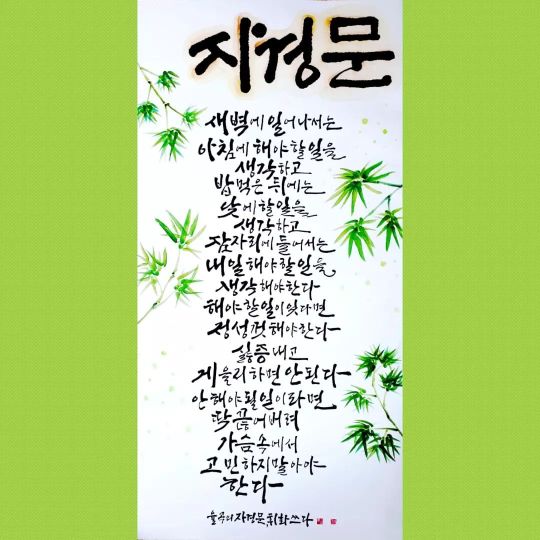 자경문
새벽에 일어나서는
아침에 해야 할 일을
생각하고
밥 먹은 뒤에는
낮에 할 일을
생각하고
잠자리에 들어서는
내일 해야 할 일을
생각해야 한다
해야 할 일이 있다면
정성껏 해야 한다
싫증내고
게을리하면 안 된다
안 해야 될 일이라면
딱 끊어버려
가슴 속에서
고민하지 말아야
한다
율곡의 자경문, 쓰다